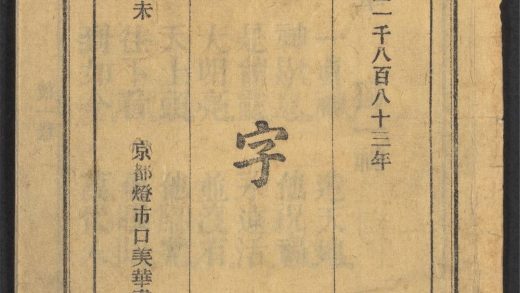 一千八百八十三年
字
未
京都燈市口美華